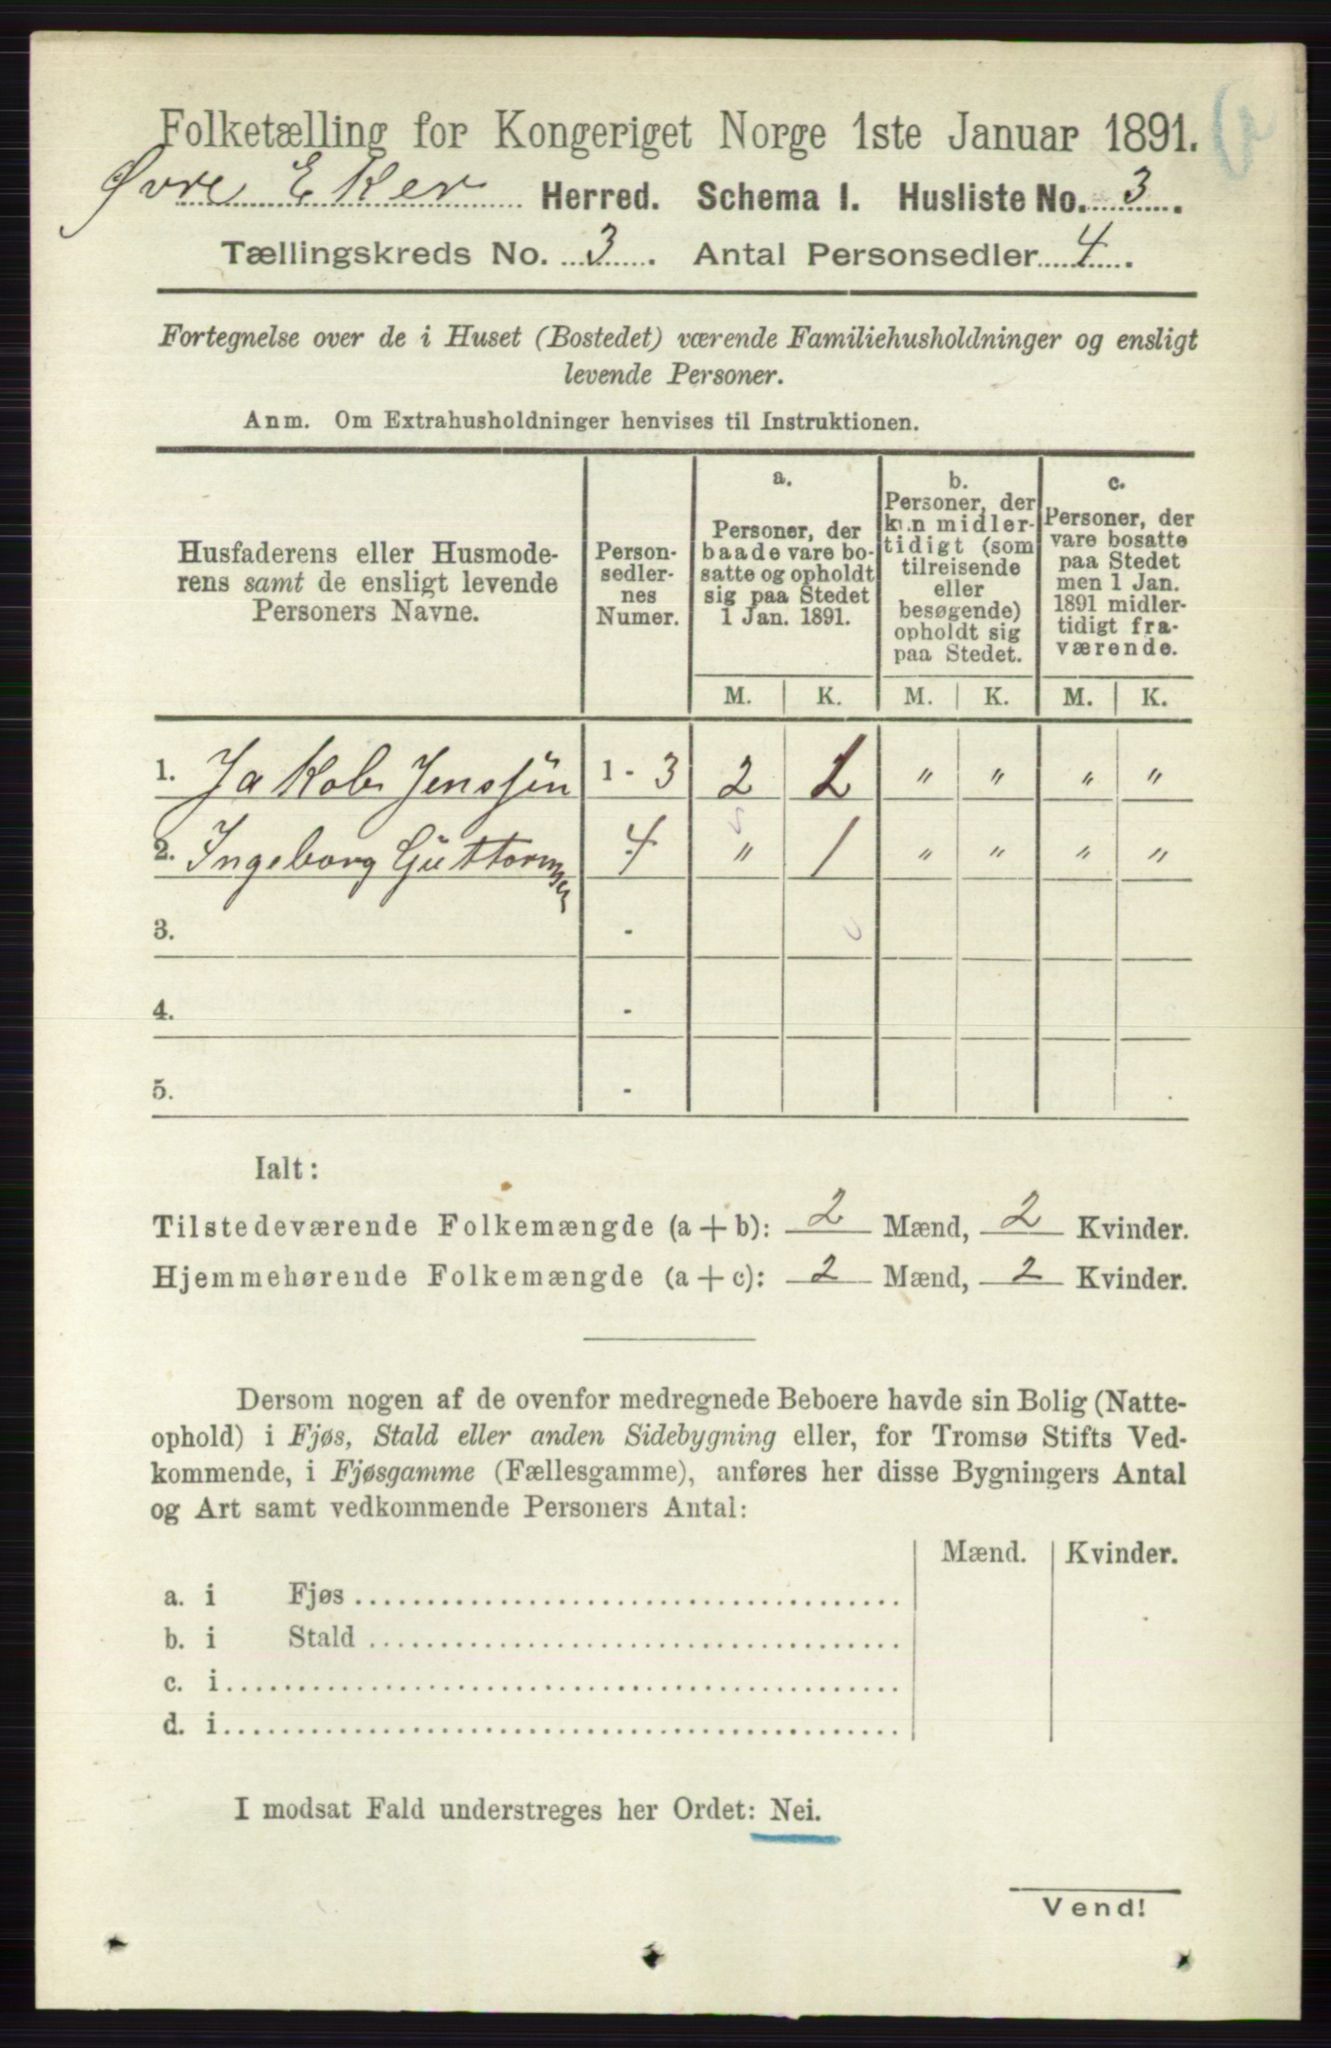 Folketælling for Kongeriget Norge 1ste Januar 1891.
Øvre Eker Herred. Schema I. Husliste No. 3.
Tællingskreds No. 3. Antal Personsedler 4.
Fortegnelse over de i Huset (Bostedet) værende Familiehusholdninger og ensligt
levende Personer.
Anm. Om Extrahusholdninger henvises til Instruktionen.
Husfaderens eller Husmode-
rens samt de ensligt levende
Personers Navne.
Person-
sedler-
nes
Numer.
a.
Personer, der
baade vare bo-
satte og opholdt
sig paa Stedet
1 Jan. 1891.
b.
Personer, der
kun midler-
tidigt (som
tilreisende
eller
besøgende)
opholdt sig
paa Stedet.
c.
Personer, der
vare bosatte
paa Stedet
men 1 Jan.
1891 midler-
tidigt fra-
værende.
M. K. M. K. M. K.
1. Jakob Jenssen 1 - 3 2 1 " " " "
2. Ingeborg Guttormsen 4 " 1 " " " "
3. -
4. -
5. -
Ialt:
Tilstedeværende Folkemængde (a + b): 2 Mænd, 2 Kvinder.
Hjemmehørende Folkemængde (a + c): 2 Mænd, 2 Kvinder.
Dersom nogen af de ovenfor medregnede Beboere havde sin Bolig (Natte-
ophold) i Fjøs, Stald eller anden Sidebygning eller, for Tromsø Stifts Ved-
kommende, i Fjøsgamme (Fællesgamme), anføres her disse Bygningers Antal
og Art samt vedkommende Personers Antal:
Mænd. Kvinder.
a. i Fjøs
b. i Stald
c. i
d. i
I modsat Fald understreges her Ordet: Nei.
Vend!